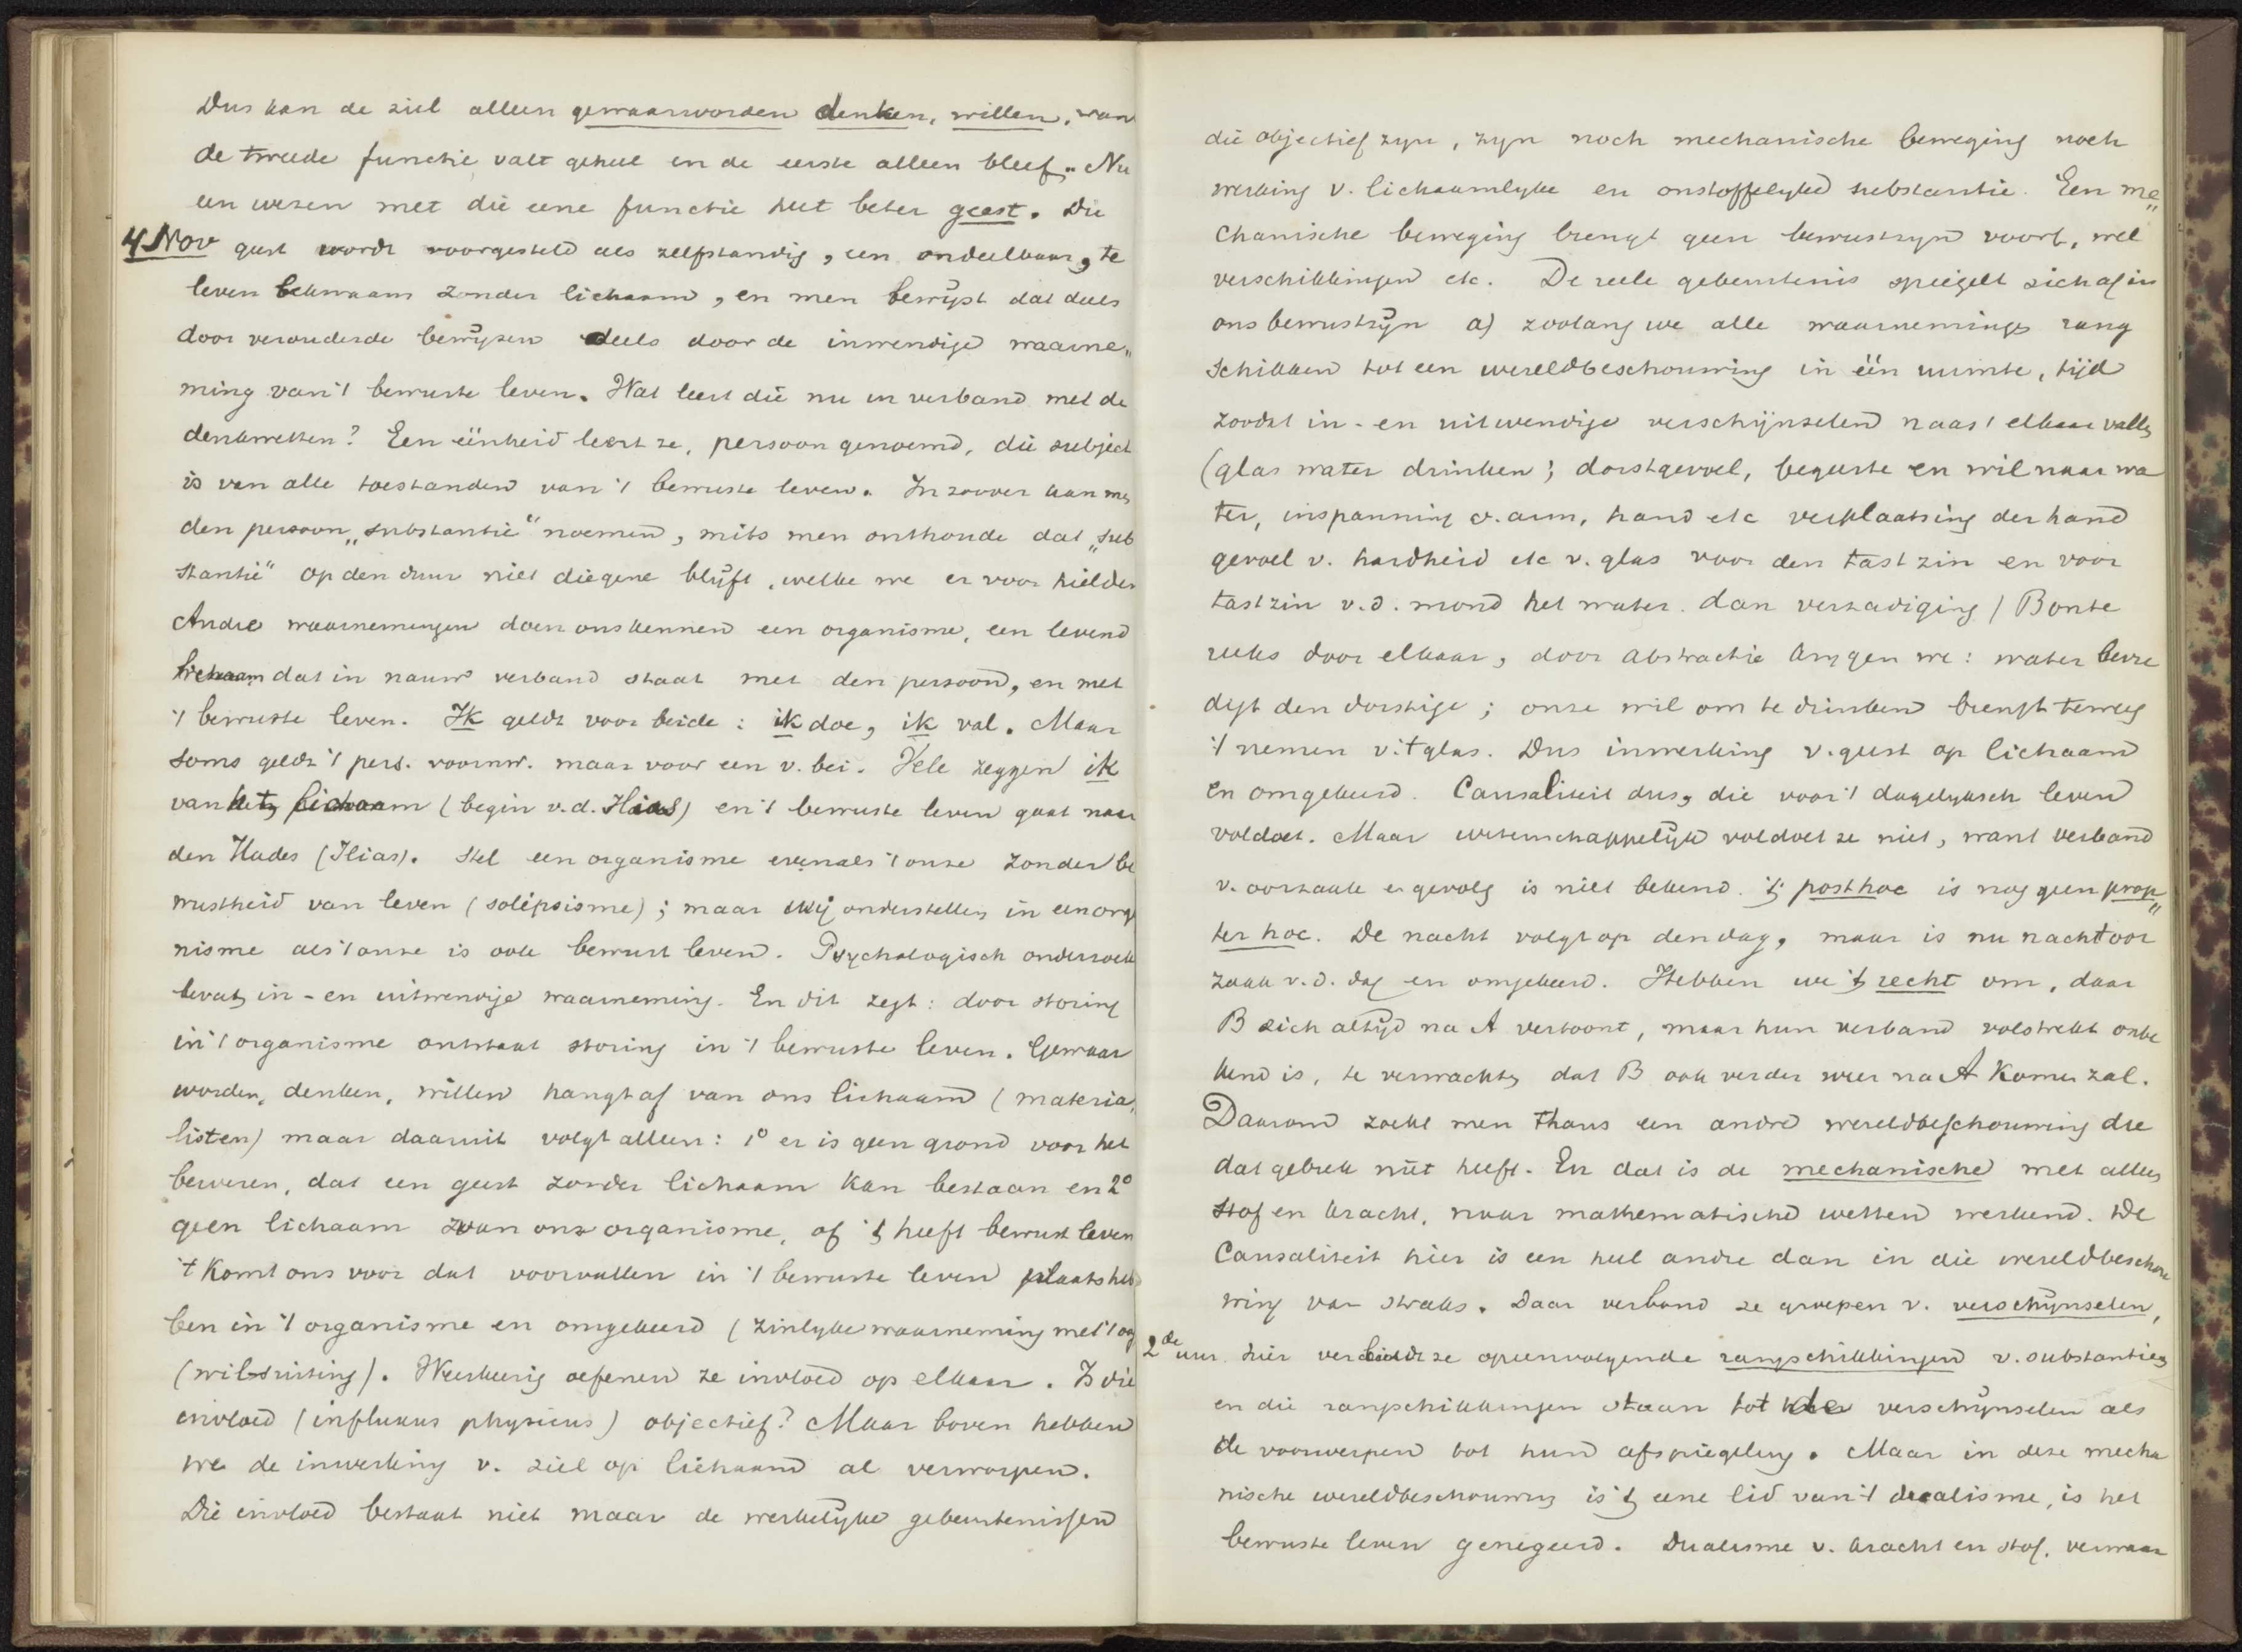 Dus kan de ziel alleen gewaarworden denken, willen, wan
de tweede functie valt geheel en de eerste alleen bleef. Nu
een wezen met die eene functie heet beter geest. Die
4 Nov geest wordt voorgesteld als zelfstandig, een, ondeelbaar, te
leven bekwaam zonder lichaam, en men bewijst dat deels
door verouderde bewijzen deels door de inwendige waarne„
ming van 't bewuste leven. Wat leert die nu in verband met de
denkwetten? Een eenheid leert ze, persoon genoemd, die subject
is van alle toestanden van 't bewuste leven. In zoover kan men
den persoon „substantie" noemen, mits men onthoude dat „sub
stantie" op den duur niet diegene blijft, welke we er voor hielden
Andre waarnemingen doen ons kennen een organisme, een levend
lichaam dat in nauw verband staat met den persoon, en met
't bewuste leven. Ik geldt voor beide: ik doe, ik val. Maar
soms geldt 't pers. voornw. maar voor een v. bei. Vele zeggen ik
van het lichaam (begin v.d. Ilias) en 't bewuste leven gaat naar
den Hades (Ilias). Stel een organisme evenals 't onze zonder be
wustheid van leven (solipsisme); maar wij onderstellen in een orga
nisme als 't onze is ook bewust leven. Psychologisch onderzoek
bevat in- en uitwendige waarneming. En dit zegt: door storing
in 't organisme ontstaat storing in 't bewuste leven. Gewaar
worden, denken, willen hangt af van ons lichaam (materia„
listen) maar daaruit volgt alleen: 1o er is geen grond voor het
beweren, dat een geest zonder lichaam kan bestaan en 2o
geen lichaam van ons organisme, of 't heeft bewust leven
't Komt ons voor dat voorvallen in 't bewuste leven plaats heb
ben in 't organisme en omgekeerd (zinlyke waarneming met 't oog
(wilsuiting). Weerkeerig oefenen ze invloed op elkaar. Is die
invloed (influxus physicus) objectief? Maar boven hebben
we de inwerking v. ziel op lichaam al verworpen.
Die invloed bestaat niet maar de werkelijke gebeurtenissen
die objectief zyn, zyn noch mechanische beweging noch
werking v. lichaamlyke en onstoffelyke substantie. Een me„
chanische beweging brengt geen bewustzyn voort, wel
verschikkingen etc. De reele gebeurtenis spiegelt zich af in
ons bewustzijn a) zoolang we alle waarnemingen rang
schikken tot een wereldbeschouwing in één ruimte, tijd
zoodat in- en uitwendige verschijnselen naast elkaar vallen
(glas water drinken; dorstgevoel, begeerte en wil naar wa
ter, inspanning v. arm, hand etc verplaatsing der hand
gevoel v. hardheid etc v. glas voor den tastzin en voor
tastzin v.d. mond het water. dan verzadiging) Bonte
reeks door elkaar, door abstractie krygen we: water bevre
digt den dorstige; onze wil om te drinken brengt teweeg
't nemen v. 't glas. Dus inwerking v. geest op lichaam
en omgekeerd. Causaliteit dus, die voor 't dagelyksch leven
voldoet. Maar wetenschappelijk voldoet ze niet, want verband
v. oorzaak en gevolg is niet bekend. 't post hoc is nog geen prop„
ter hoc. De nacht volgt op den dag, maar is nu nacht oor
zaak v.d. dag en omgekeerd. Hebben we 't recht om, daar
B zich altijd na A vertoont, maar hun verband volstrekt onbe
kend is, te verwachten dat B ook verder weer na A komen zal.
Daarom zoekt men thans een andre wereldbeschouwing die
dat gebrek niet heeft. En dat is de mechanische met alleen
stof en kracht, naar mathematische wetten werkend. De
Causaliteit hier is een heel andre dan in die wereldbeschou
wing van straks. Daar verbond ze groepen v. verschijnselen,
2de uur. hier verbindt ze opeenvolgende rangschikkingen v. substanties
en die rangschikkingen staan tot de verschijnselen als
de voorwerpen tot hun afspiegeling. Maar in deze mecha
nische wereldbeschouwing is 't eene lid van 't dualisme, is het
bewuste leven genegeerd. Dualisme v. kracht en stof. verwaar